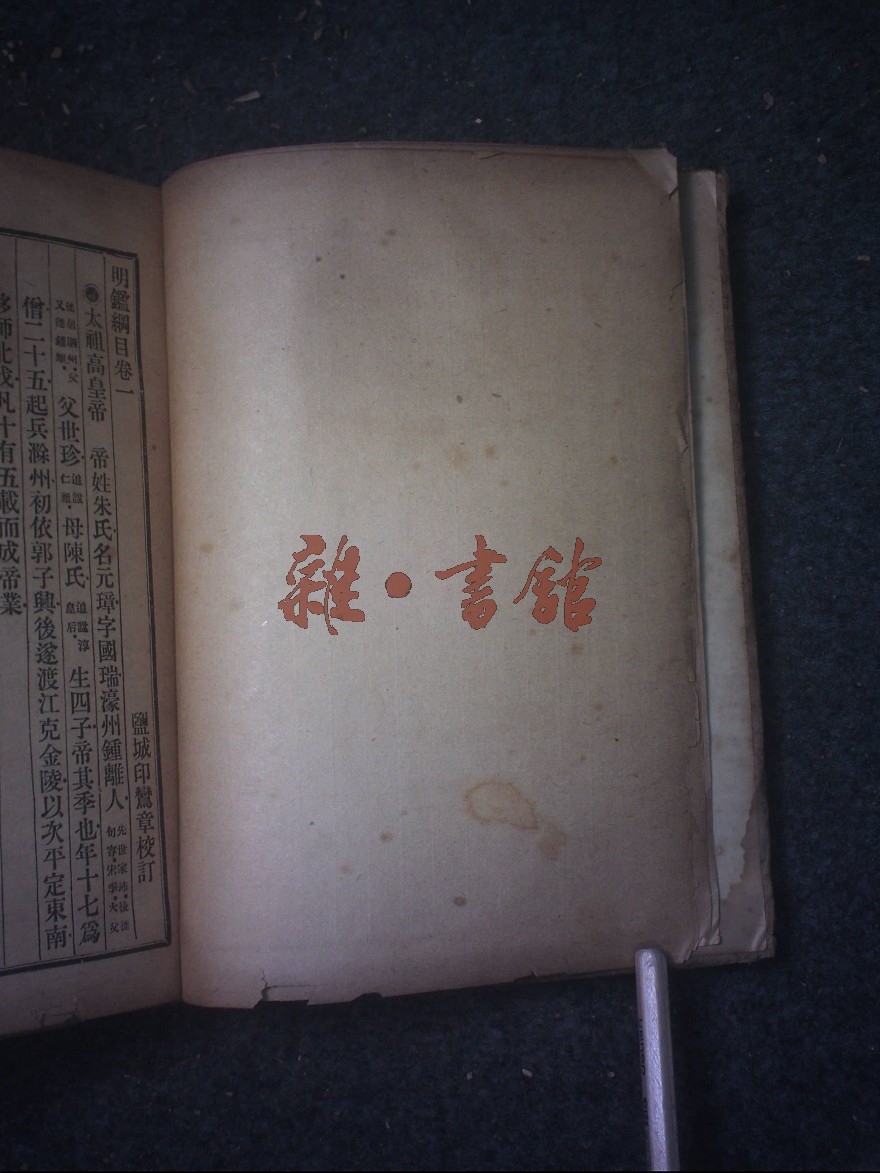 明鑑綱目卷一
鹽城印鸞章校訂
太祖高皇帝 帝姓朱氏名元璋字國瑞濠州鍾離人 先世家沛徙
句容宋季大父
徙居泗州父
又徙鍾離 父世珍 追諡
仁祖 母陳氏 追諡淳
皇后 生四子帝其季也年十七爲
僧二十五起兵滁州初依郭子興後遂渡江克金陵以次平定東南
移師北伐凡十有五載而成帝業
雜·書館